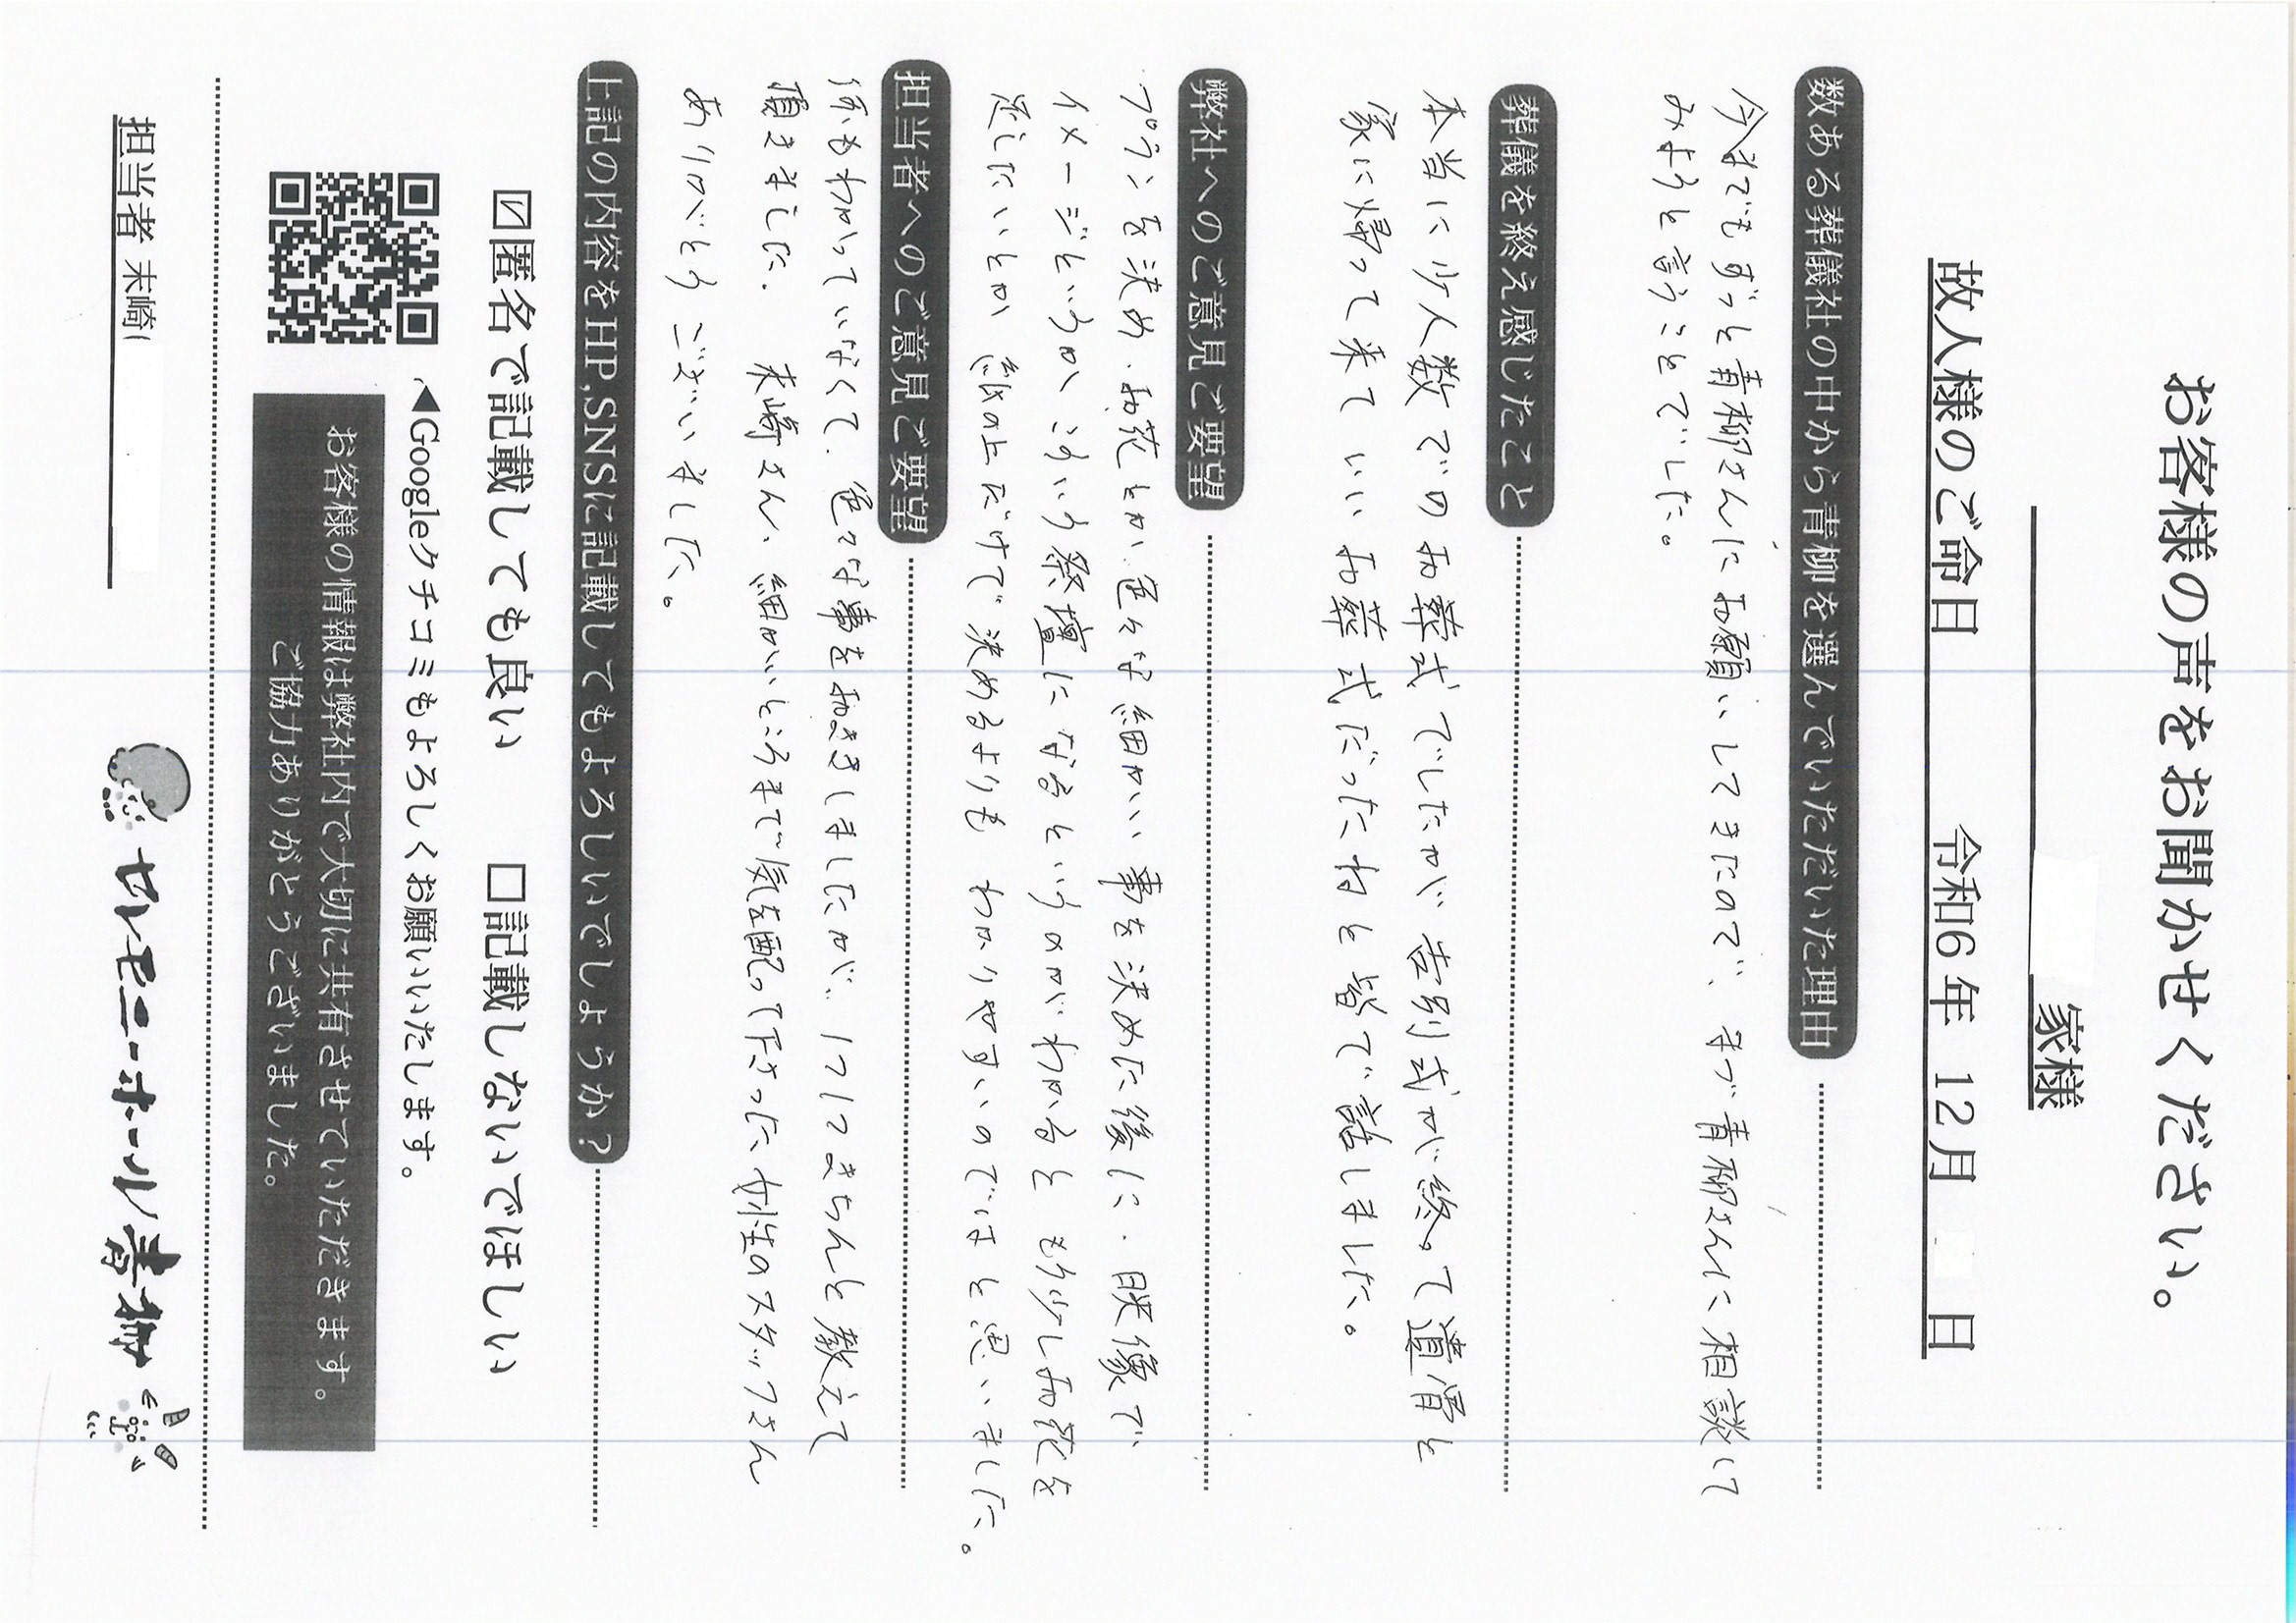 お客様の声をお聞かせください。
家様
故人様のご命日 令和6年 12月 日
数ある葬儀社の中から青柳を選んでいただいた理由
今まででもずっと青柳さんにお願いしてきたので、まづ青柳さんに相談して
みようと言うことでした。
葬儀を終え感じたこと
本当に少人数でのお葬式でしたが 告別式が終って遺骨と
家に帰って来て いいお葬式だったねと皆で話しました。
弊社へのご意見ご要望
プランを決め、お花とか、色々な細かい事を決めた後に、映像で、
イメージというか こういう祭壇になるというのがわかると もう少しお花を
足したいとか 紙の上だけで決めるよりも わかりやすいのではと思いました。
担当者へのご意見ご要望
何もわかっていなくて、色々な事をお聞きしましたが、1つ1つきちんと教えて
頂きました。 末崎さん、細かいところまで気を配って下さった女性のスタッフさん
ありがとうございました。
上記の内容をHP,SNSに記載してもよろしいでしょうか?
☑匿名で記載しても良い □記載しないでほしい
◀Googleクチコミもよろしくお願いいたします。
お客様の情報は弊社内で大切に共有させていただきます。
ご協力ありがとうございました。
担当者 末崎
セレモニーホール青柳